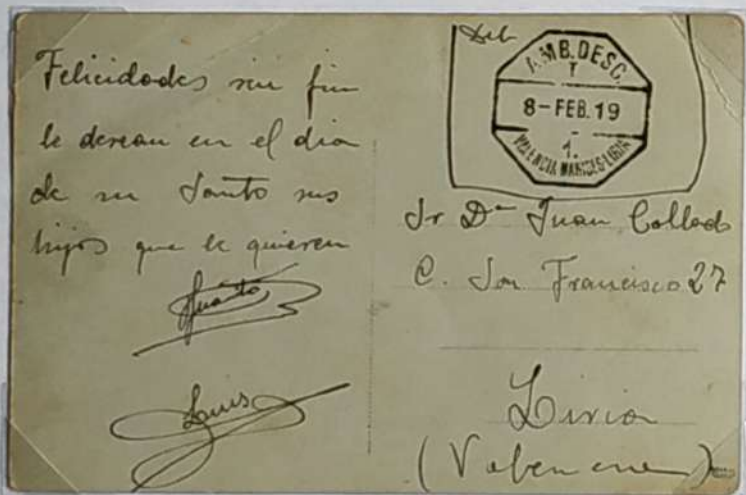 Felicidades sin fin
le desean en el dia
de su Santo sus
hijos que le quieren
Juanito
Luis
AMB. DESC.
T
8-FEB. 19
1.
VALENCIA MANISES-LIRIA
Sr Dn Juan Collado
C. San Francisco 27
Liria
(Valencia)